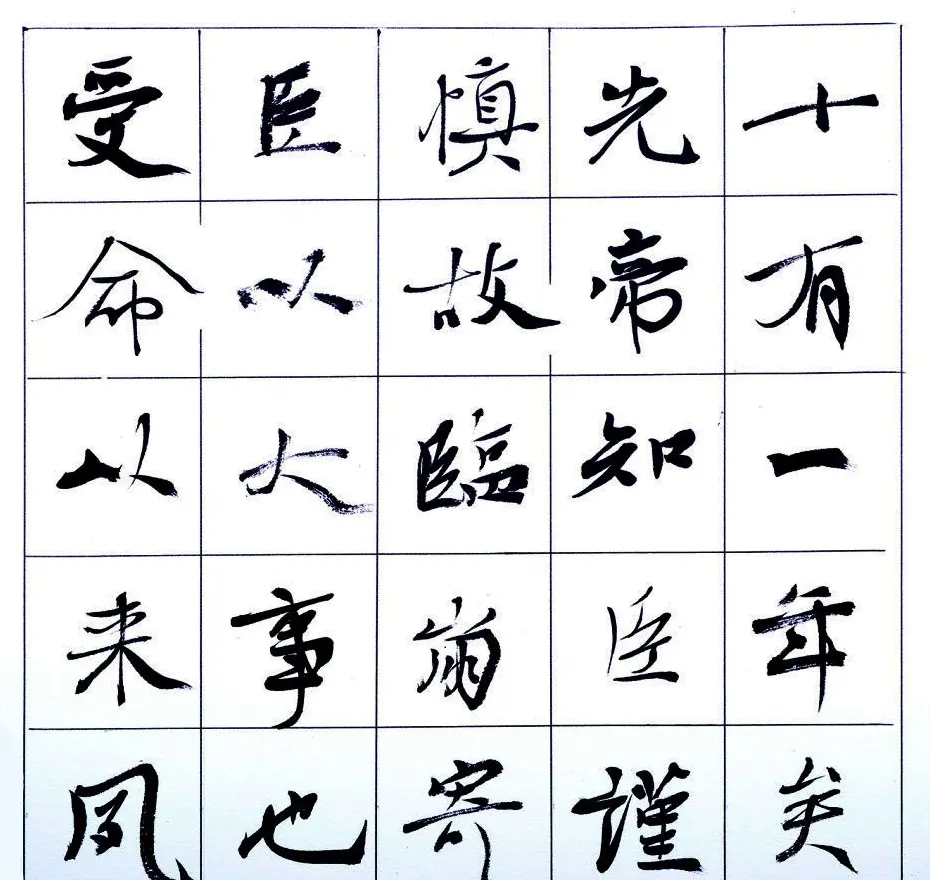 十有一年矣
先帝知臣謹
慎故臨崩寄
臣以大事也
受命以来夙